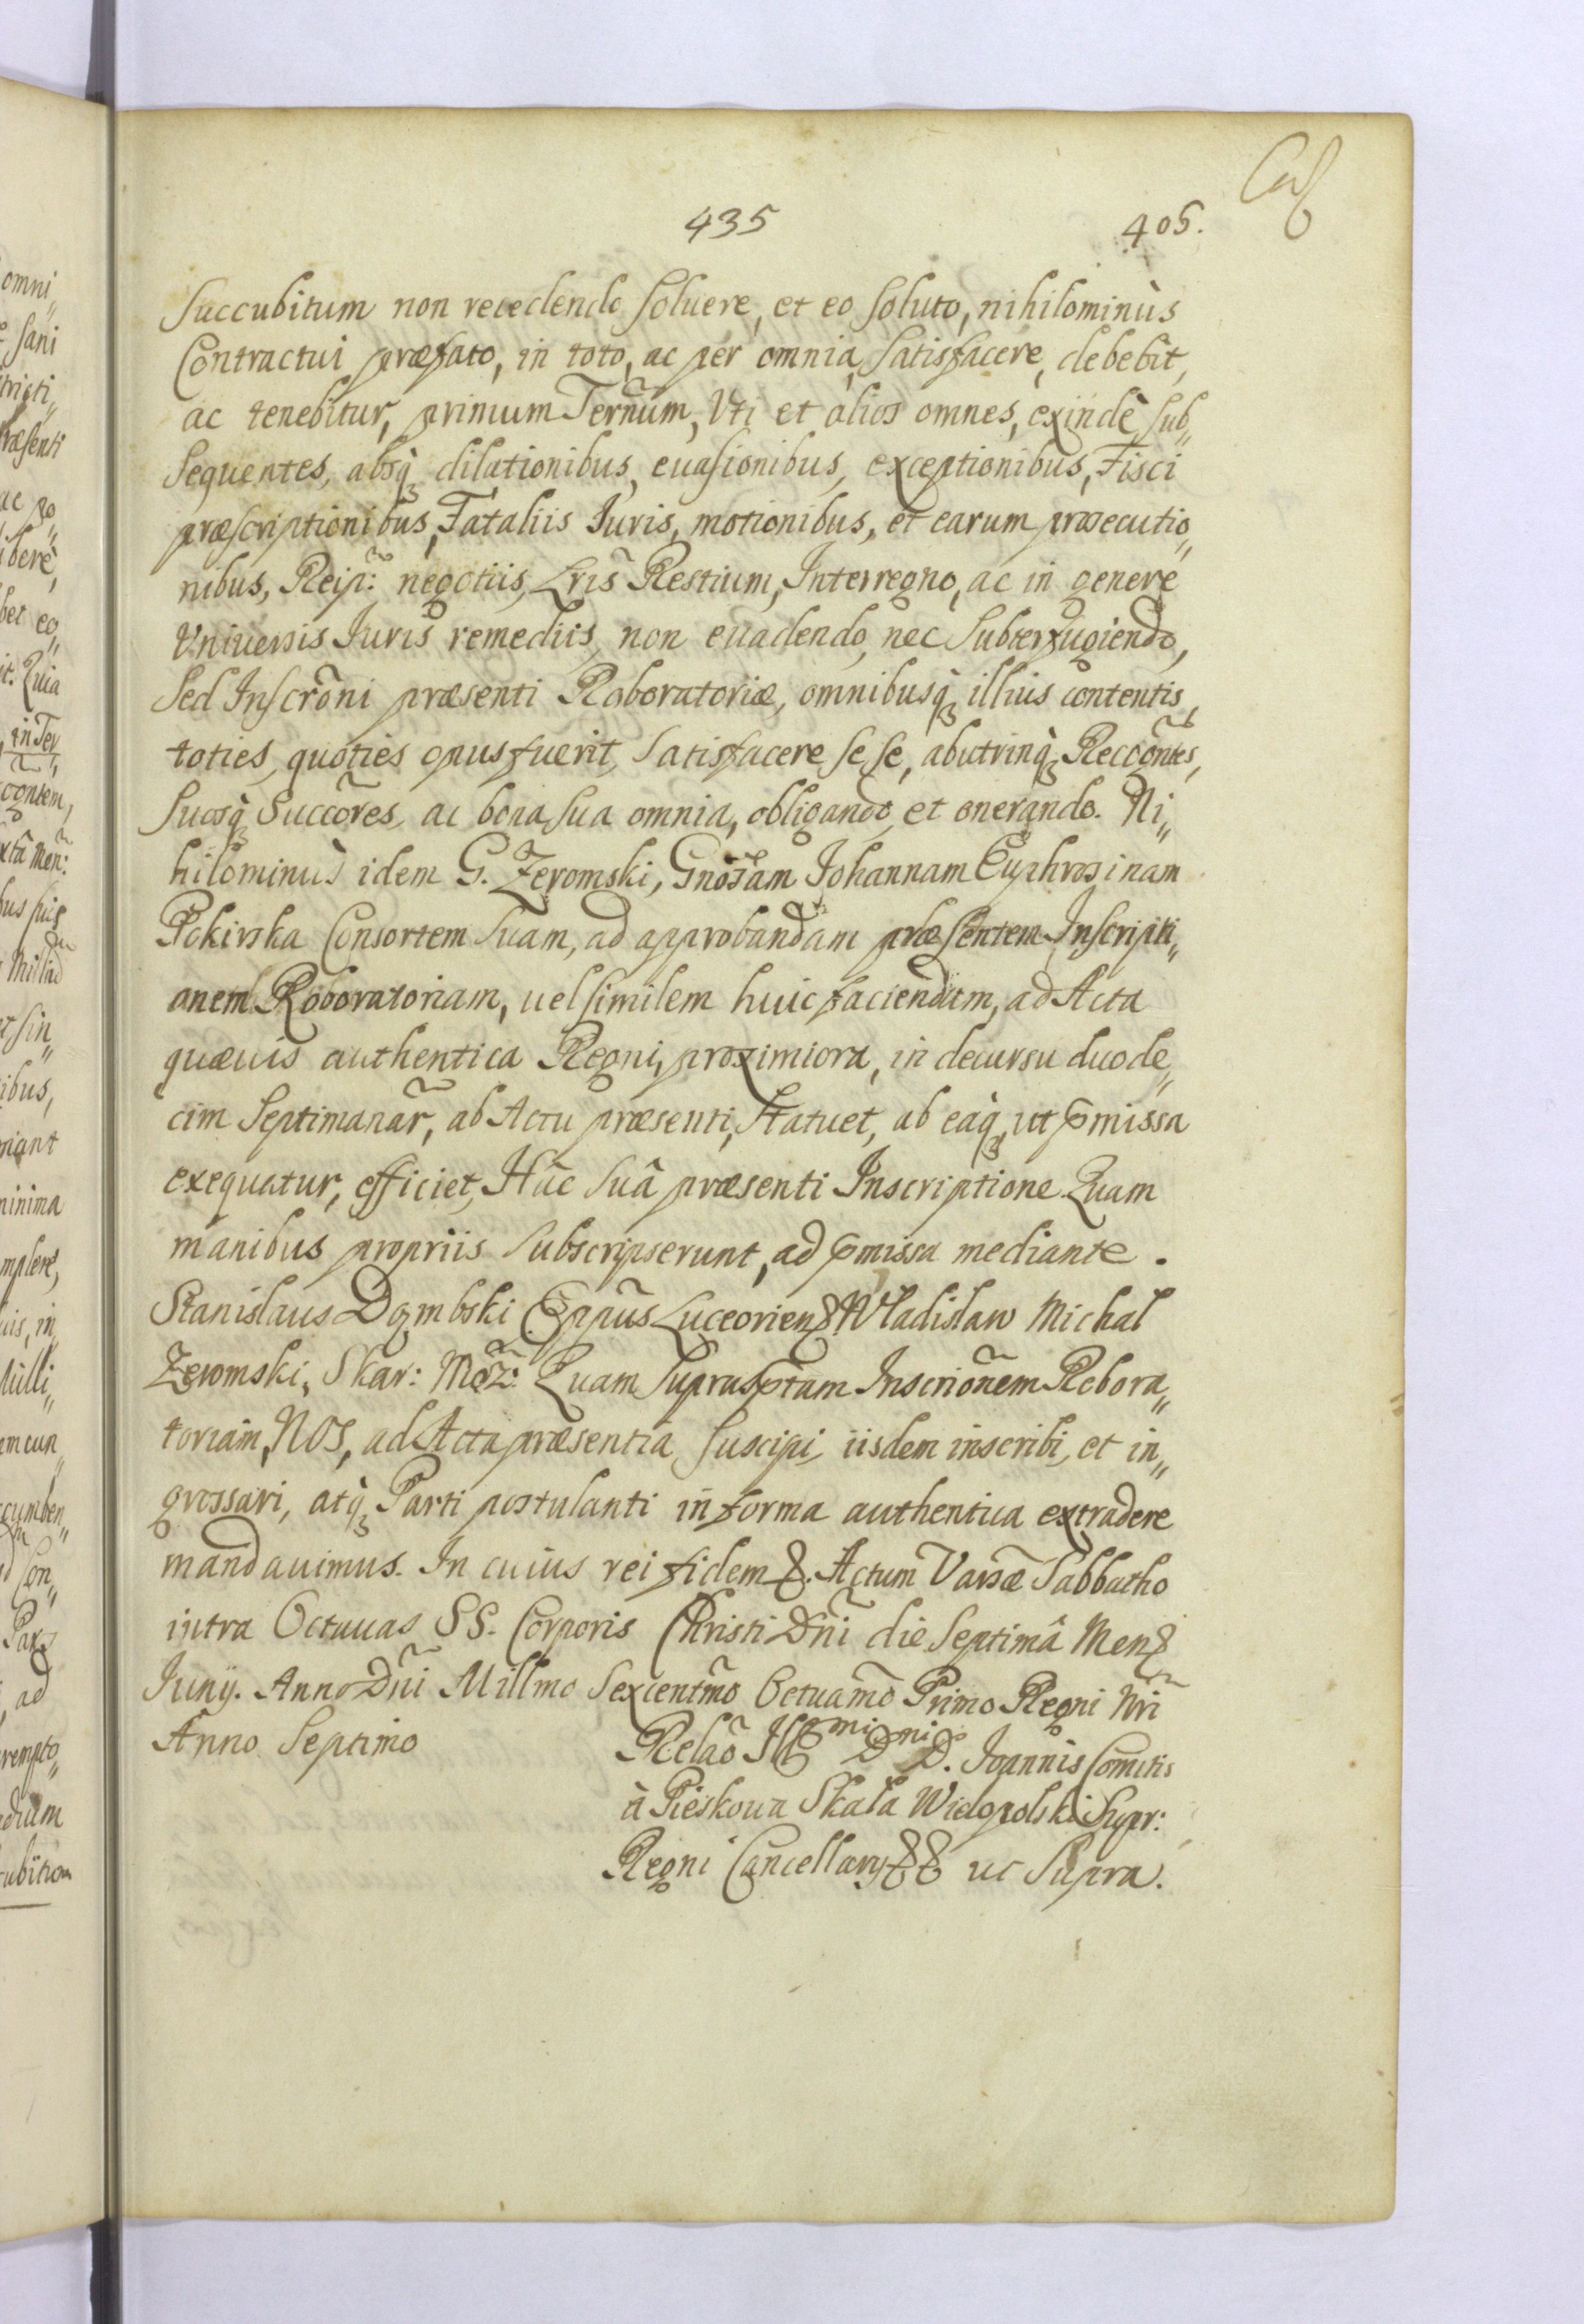 435
405.
Succubitum non recedendo soluere, et eo soluto, nihilominùs
Contractui præfato, in toto, ac per omnia, satisfacere, debebit,
ac tenebitur, primum Terñum, Vti et alios omnes, exindè sub„
sequentes, absq; dilationibus, euasionibus, exceptionibus, Fisci
præscriptionibus, Fataliis Iuris, motionibus, et earum prosecutio„
nibus, Reip: negotiis, Lris Restium, Interregno, ac in genere
Vniuersis Iuris remediis, non euadendo, nec subterfugiendo,
sed Inscrõni præsenti Roboratoriæ, omnibusq; illius contentis,
toties, quoties opus fuerit, satisfacere se se, abutrinq; Reccoñtes,
suosq; Succõres, ac bona sua omnia, obligando, et onerando. Ni„
hilominùs idem G. Zeromski, Gnõsam Johannam Euphrosinam
Pokirska Consortem suam, ad approbandam præsentem Inscripti„
onem Roboratoriam, uel similem huic faciendam, ad Acta
quæuis authentica Regni, proximiora, in decursu duode„
cim septimanar̃, ab Actu præsenti, statuet, ab eaq; ut p̃missa
exequatur, efficiet, Hâc suâ præsenti Inscriptione. Quam
manibus propriis subscripserunt, ad p̃missa mediante.
Stanislaus Dąmbski Eppũs Luceorien& Wladislaw Michal
Zeromski, Skar: Moz: Quam suprasptam Inscrionẽm Robora„
toriam, NOS, ad Acta præsentia suscipi, iisdem inscribi, et in„
grossari, atq; Parti postulanti in forma authentica extradere
mandauimus. In cuius rei fidem &. Actum Varsæ Sabbatho
intra Octauas SS. Corporis Christi Dñi die septimâ Men&
Iunij. Anno Dñi Millmo Sexcentm̃o Octuam̃o Primo Regni Nri
Anno Septimo
Relaõ Illmi Dni D. Ioannis Comitis
à Pieskoua Skała Wielopolski Supr:
Regni Cancellarij && ut supra.